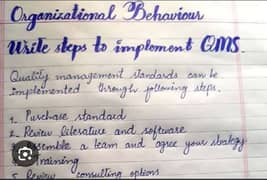 Organizational Behaviour
Write steps to implement QMS.
Quality management standards can be
implemented through following steps.
1. Purchase standard
2. Review literature and software
semble a team and agree your strategy
raining
5. Review consulting options